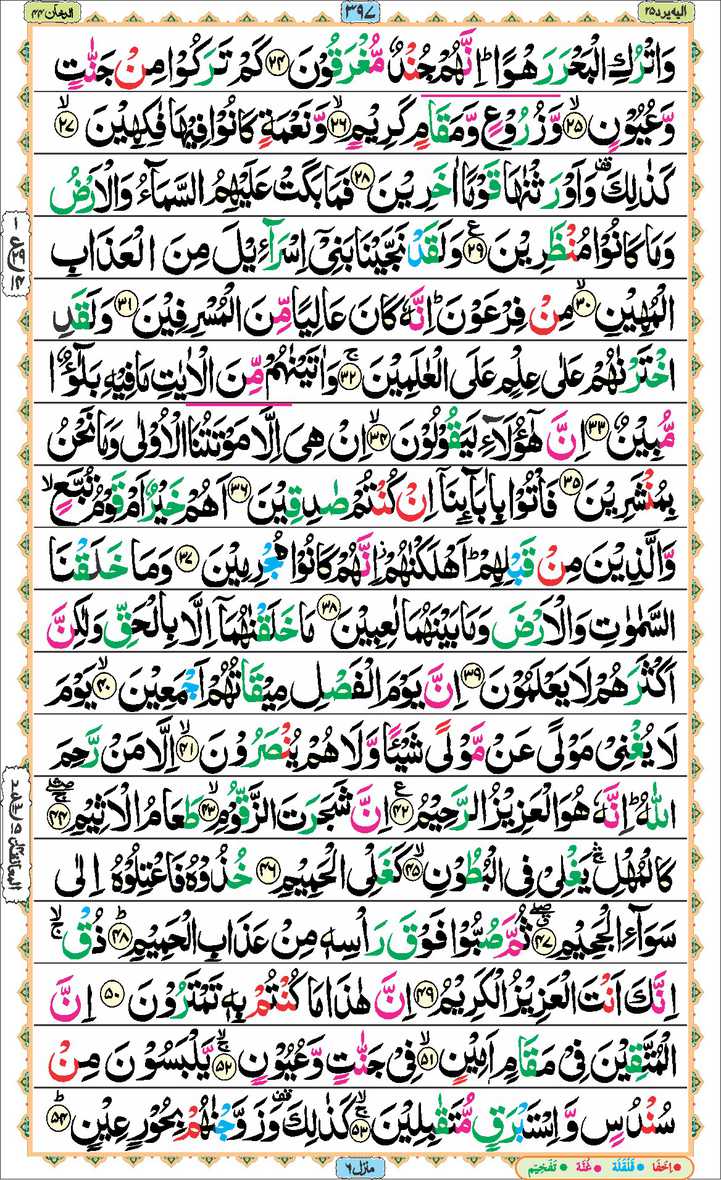 الیه یرد ۲۵
۳۹۷
الدخان ۴۴
وَاتْرُكِ الْبَحْرَ رَهْوًا ؕ اِنَّهُمْ جُنْدٌ مُّغْرَقُوْنَ ﴿۲۴﴾ كَمْ تَرَكُوْا مِنْ جَنّٰتٍ
وَّعُيُوْنٍ ۙ﴿۲۵﴾ وَّزُرُوْعٍ وَّمَقَامٍ كَرِيْمٍ ۙ﴿۲۶﴾ وَّنَعْمَةٍ كَانُوْا فِيْهَا فٰكِهِيْنَ ۙ﴿۲۷﴾
كَذٰلِكَ ۫ وَاَوْرَثْنٰهَا قَوْمًا اٰخَرِيْنَ ﴿۲۸﴾ فَمَا بَكَتْ عَلَيْهِمُ السَّمَآءُ وَالْاَرْضُ
وَمَا كَانُوْا مُنْظَرِيْنَ ﴿۲۹﴾ع وَلَقَدْ نَجَّيْنَا بَنِيْۤ اِسْرَآءِيْلَ مِنَ الْعَذَابِ
الْمُهِيْنِ ۙ﴿۳۰﴾ مِنْ فِرْعَوْنَ ؕ اِنَّهٗ كَانَ عَالِيًا مِّنَ الْمُسْرِفِيْنَ ﴿۳۱﴾ وَلَقَدِ
اخْتَرْنٰهُمْ عَلٰى عِلْمٍ عَلَى الْعٰلَمِيْنَ ۚ﴿۳۲﴾ وَاٰتَيْنٰهُمْ مِّنَ الْاٰيٰتِ مَا فِيْهِ بَلٰٓؤٌا
مُّبِيْنٌ ﴿۳۳﴾ اِنَّ هٰٓؤُلَآءِ لَيَقُوْلُوْنَ ۙ﴿۳۴﴾ اِنْ هِيَ اِلَّا مَوْتَتُنَا الْاُوْلٰى وَمَا نَحْنُ
بِمُنْشَرِيْنَ ﴿۳۵﴾ فَاْتُوْا بِاٰبَآئِنَاۤ اِنْ كُنْتُمْ صٰدِقِيْنَ ﴿۳۶﴾ اَهُمْ خَيْرٌ اَمْ قَوْمُ تُبَّعٍ ۙ
وَّالَّذِيْنَ مِنْ قَبْلِهِمْ ؕ اَهْلَكْنٰهُمْ ؗ اِنَّهُمْ كَانُوْا مُجْرِمِيْنَ ﴿۳۷﴾ وَمَا خَلَقْنَا
السَّمٰوٰتِ وَالْاَرْضَ وَمَا بَيْنَهُمَا لٰعِبِيْنَ ﴿۳۸﴾ مَا خَلَقْنٰهُمَاۤ اِلَّا بِالْحَقِّ وَلٰكِنَّ
اَكْثَرَهُمْ لَا يَعْلَمُوْنَ ﴿۳۹﴾ اِنَّ يَوْمَ الْفَصْلِ مِيْقَاتُهُمْ اَجْمَعِيْنَ ۙ﴿۴۰﴾ يَوْمَ
لَا يُغْنِيْ مَوْلًى عَنْ مَّوْلًى شَيْـًٔا وَّلَا هُمْ يُنْصَرُوْنَ ۙ﴿۴۱﴾ اِلَّا مَنْ رَّحِمَ
اللّٰهُ ؕ اِنَّهٗ هُوَ الْعَزِيْزُ الرَّحِيْمُ ﴿۴۲﴾ع اِنَّ شَجَرَتَ الزَّقُّوْمِ ۙ﴿۴۳﴾ طَعَامُ الْاَثِيْمِ ﴿۴۴﴾
كَالْمُهْلِ ۛۚ يَغْلِيْ فِي الْبُطُوْنِ ۙ﴿۴۵﴾ كَغَلْيِ الْحَمِيْمِ ﴿۴۶﴾ خُذُوْهُ فَاعْتِلُوْهُ اِلٰى
سَوَآءِ الْجَحِيْمِ ﴿۴۷﴾ ثُمَّ صُبُّوْا فَوْقَ رَاْسِهٖ مِنْ عَذَابِ الْحَمِيْمِ ؕ﴿۴۸﴾ ذُقْ ۙۚ
اِنَّكَ اَنْتَ الْعَزِيْزُ الْكَرِيْمُ ﴿۴۹﴾ اِنَّ هٰذَا مَا كُنْتُمْ بِهٖ تَمْتَرُوْنَ ﴿۵۰﴾ اِنَّ
الْمُتَّقِيْنَ فِيْ مَقَامٍ اَمِيْنٍ ۙ﴿۵۱﴾ فِيْ جَنّٰتٍ وَّعُيُوْنٍ ۚۙ﴿۵۲﴾ يَّلْبَسُوْنَ مِنْ
سُنْدُسٍ وَّاِسْتَبْرَقٍ مُّتَقٰبِلِيْنَ ۚۙ﴿۵۳﴾ كَذٰلِكَ ۫ وَزَوَّجْنٰهُمْ بِحُوْرٍ عِيْنٍ ؕ﴿۵۴﴾
منزل ۶
• اِخفَا • قَلقَلَة • غُنَّة • تَفخِیم